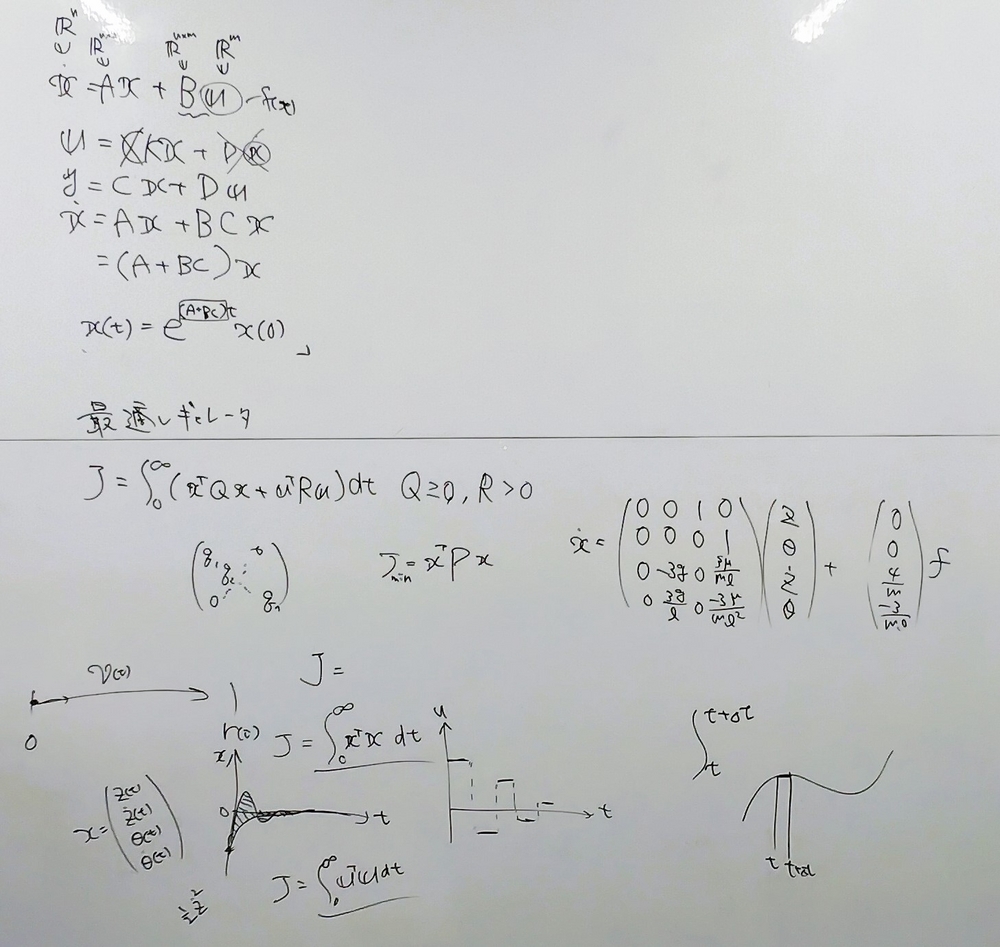 ℝⁿ ℝⁿˣⁿ ℝⁿˣᵐ ℝᵐ
ẋ = Ax + Bu - f(x)
u = Kx + Dx
y = Cx + Du
ẋ = Ax + BCx
= (A + BC)x
x(t) = e^{(A+BC)t} x(0)
最適レギュレータ
J = ∫₀^∞ (xᵀQx + uᵀRu)dt Q≥0, R>0
(q₁ q₂ 0 0 qₙ)
J_min = xᵀPx
ẋ = (0 0 1 0; 0 0 0 1; 0 -3g 0 3μ/ml; 0 3g/l 0 -3μ/ml²)(z; θ; ż; θ̇) + (0; 0; 4/m; -3/ml) f
J =
v(t)
0
r(t)
J = ∫₀^∞ xᵀx dt
x
0
t
u
t
∫ₜ^{t+Δt}
x = (z(t); ż(t); θ(t); θ̇(t))
t t+Δt
J = ∫₀^∞ uᵀu dt
½ż²